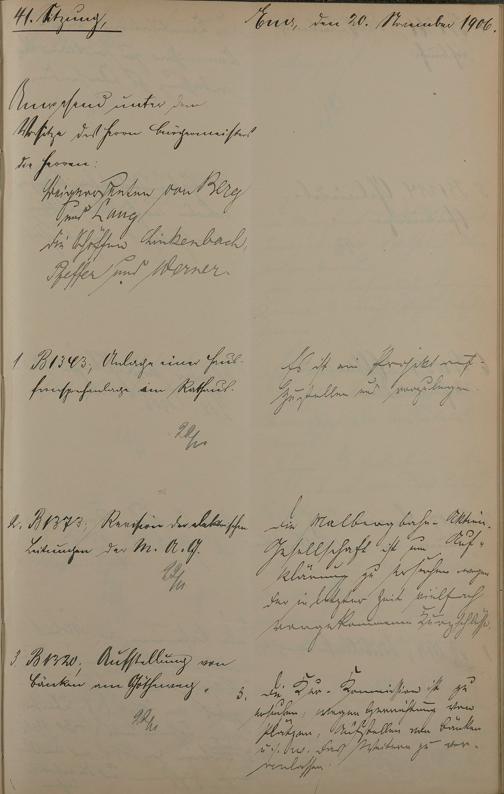 41. Sitzung,
Ems, den 20. November 1906.
Anwesend unter dem
Vorsitze des Herrn Bürgermeisters
die Herren:
Beigeordneten von Berg
und Lang
die Schöffen Linkenbach,
Pfeffer und Werner.
1 B1343, Anlage einer Haus-
fernsprechanlage im Rathaus.
22/11
Es ist ein Projekt auf-
zustellen und vorzulegen.
2. B1373, Revision der elektrischen
Leitungen der M. A. G.
22/11
Die Malbergbahn-Aktien-
Gesellschaft ist um Auf-
klärung zu ersuchen wegen
der in letzter Zeit vielfach
vorgekommenen Kurzschlüsse.
3. B1320, Aufstellung von
Bänken am Götheweg.
22/11
3. Die Kur-Kommission ist zu
ersuchen, wegen Herrichtung von
Plätzen, Aufstellen von Bänken
u. s. w. das Weitere zu ver-
anlassen.